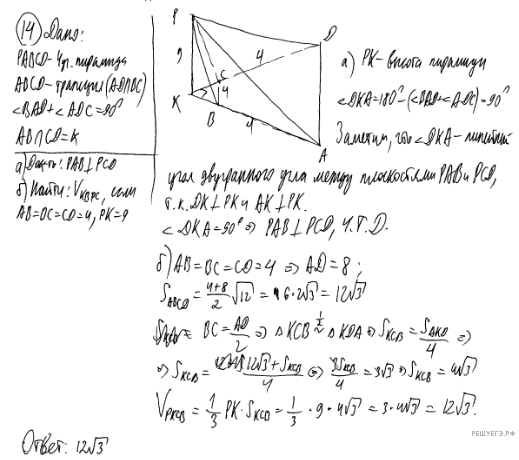 14 Дано:
PABCD - 4уг. пирамида
ABCD - трапеция (AD∥BC)
∠BAD + ∠ADC = 90°
AB∩CD = K
а) Док-ть: PAB⊥PCD
б) Найти: V_KBPC, если
AB=BC=CD=4, PK=9
P
9
K
C
4
B
4
4
D
A
а) PK - высота пирамиды
∠DKA = 180° - (∠BAD + ∠ADC) = 90°
Заметим, что ∠DKA - линейный
угол двугранного угла между плоскостями PAB и PCD,
т.к. DK⊥PK и AK⊥PK.
∠DKA = 90° ⇒ PAB⊥PCD, Ч.Т.Д.
б) AB = BC = CD = 4 ⇒ AD = 8;
S_ABCD = (4+8)/2 √12 = 6·2√3 = 12√3
BC = AD/2 ⇒ △KCB ~ △KDA ⇒ S_KCB = S_DKA/4 ⇒
⇒ S_KCB = (12√3 + S_KCB)/4 ⇒ 3S_KCB/4 = 3√3 ⇒ S_KCB = 4√3
V_PKCB = 1/3 PK·S_KCB = 1/3 · 9 · 4√3 = 3·4√3 = 12√3.
Ответ: 12√3
РЕШУЕГЭ.РФ